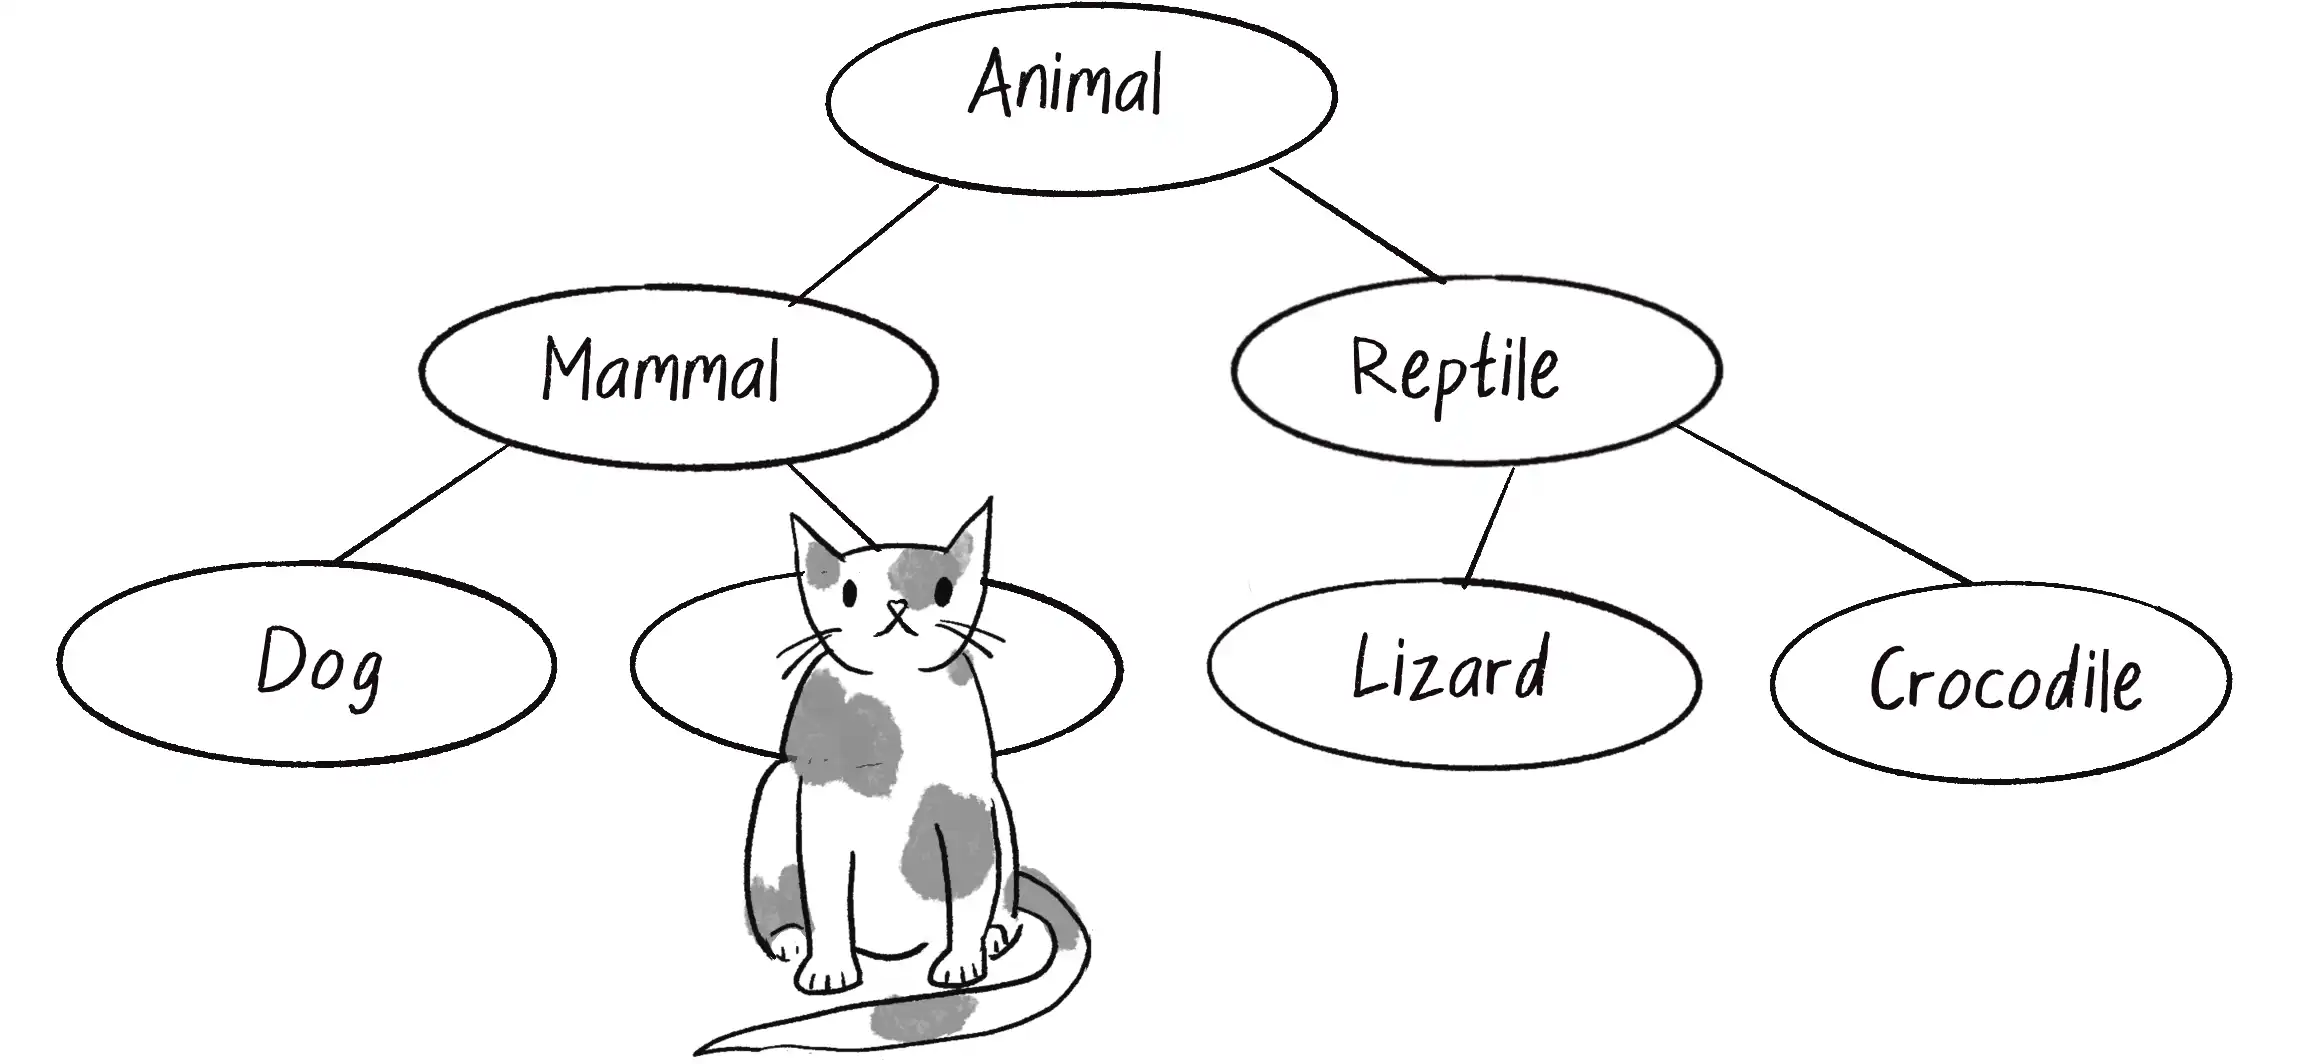 Animal
Mammal
Reptile
Dog
Lizard
Crocodile